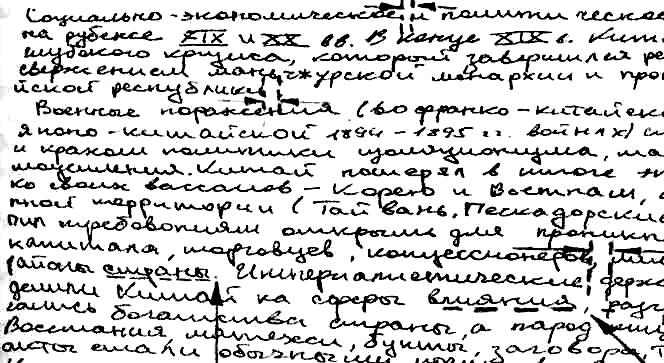 Социально-экономическое и политическое
на рубеже XIX и XX вв. В конце XIX в. Кит
глубокого кризиса, который завершился ре
свержением маньчжурской монархии и про
йской республики
Военные поражения (во франко-китайск
японо-китайской 1894-1895 гг. войнах) с
и крахом политики изоляционизма, та
моусиления. Китай потерял в итоге
ко своих вассалов - Корею и Вьетнам,
ной территории (Тайвань, Пескадорские
пил требованиям открыть для проникн
капитала, торговцев, концессионеров, ми
районы страны. Империалистические держ
делили Китай на сферы влияния,
гались богатства страны, а народ нищ
Восстания, мятежи, бунты, заговоры, т
акты стали обычными